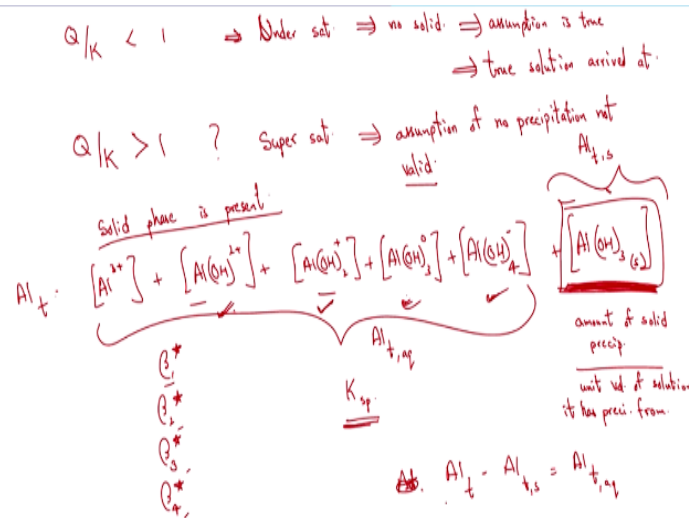 Q/K < 1 ⇒ Under sat. ⇒ no solid ⇒ assumption is true
⇒ true solution arrived at.
Q/K > 1 ? Super sat. ⇒ assumption of no precipitation not
valid.
Al_t,s
Solid phase is present.
Al_t = [Al³⁺] + [Al(OH)²⁺] + [Al(OH)₂⁺] + [Al(OH)₃⁰] + [Al(OH)₄⁻] + [Al(OH)₃(s)]
Al_t,aq
amount of solid
precip.
unit vol. of solution
it has preci. from.
β₁*
β₂*
β₃*
β₄*
K_sp
Al_t - Al_t,s = Al_t,aq